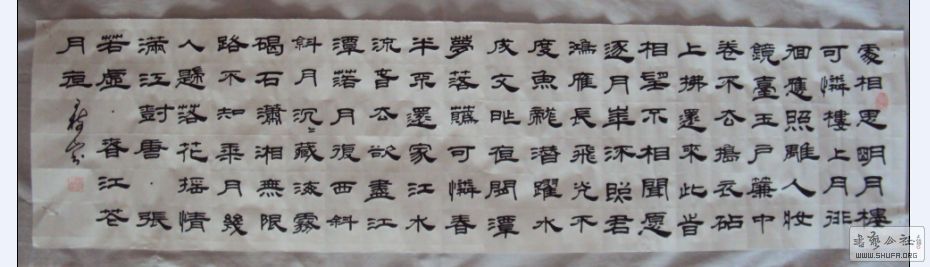 處相思明月樓
可憐樓上月徘
徊應照離人妝
鏡臺玉戶簾中
卷不去搗衣砧
上拂還來此旹
相望不相聞愿
逐月華流照君
鴻雁長飛光不
度魚龍潛躍水
成文昨夜閒潭
夢落蘤可憐春
半不還家江水
流春去欲盡江
潭落月復西斜
斜月沉〻藏海霧
碣石瀟湘無限
路不知乘月幾
人歸落花搖情
滿江樹 唐 張
若虛 春江花
月夜
書藝公社
WWW.SHUFA.ORG